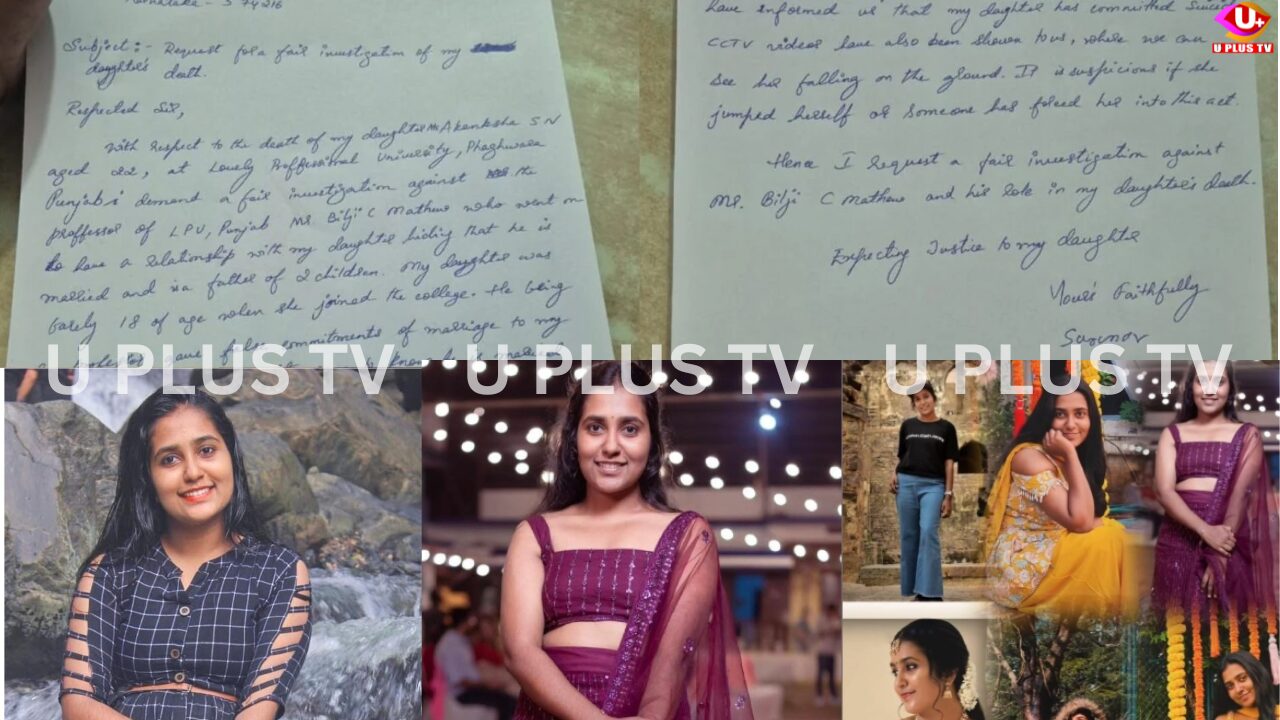 Karnataka - 574216
Subject :- Request for a fair investigation of my
daughter's death.
Respected Sir,
With respect to the death of my daughter Ms Akanksha S N
aged 22, at Lovely Proffessional University, Phaghwara
Punjab i demand a fair investigation against the
proffessor of LPU, Punjab Mr. Bilji C Mathew who went on
to have a relationship with my daughter hiding that he is
married and is a father of 2 children. My daughter was
barely 18 of age when she joined the college. He being
gave false commitments of marriage to my
have informed us that my daughter has committed suicide
CCTV videos have also been shown to us, where we can
see her falling on the ground. It is suspicious if she
jumped herself or someone has forced her into this act.
Hence I request a fair investigation against
Mr. Bilji C Mathew and his role in my daughter's death.
Expecting Justice to my daughter
Your's Faithfully
U+
U PLUS TV
U PLUS TV
U PLUS TV
U PLUS TV